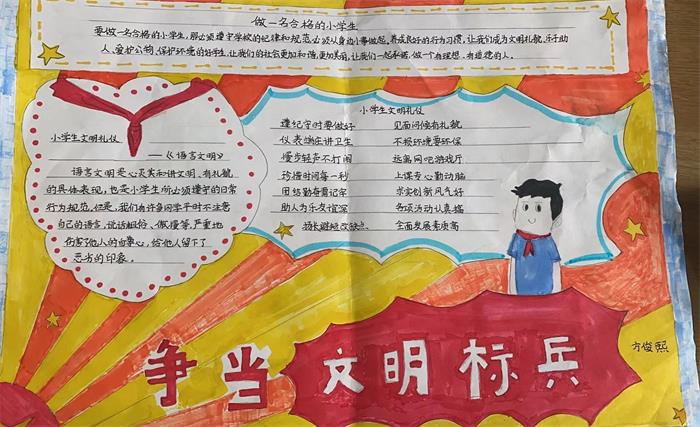 做一名合格的小学生
要做一名合格的小学生，那必须遵守学校的纪律和规范，必须从身边小事做起。养成良好的行为习惯，让我们成为文明礼貌、乐于助
人、爱护公物、保护环境的好学生，让我们的社会更加和谐，更加美丽，让我们一起承诺，做一个有理想、有道德的人。
小学生文明礼仪
——《语言文明》
语言文明是心灵美和讲文明、有礼貌
的具体表现，也是小学生所必须遵守的日常
行为规范。但是，我们有许多同学平时不注意
自己的语言，说话粗俗、傲慢等，严重地
伤害了他人的自尊心，给他人留下了
恶劣的印象。
小学生文明礼仪
遵纪守时要做好 见面问候有礼貌
仪表端庄讲卫生 不损环境要环保
慢步轻声不打闹 远离网吧游戏厅
珍惜时间每一秒 上课专心勤动脑
团结勤奋需记牢 求实创新风气好
助人为乐友谊深 各项活动认真搞
扬长避短改缺点、 全面发展素质高
争当文明标兵
方俊熙